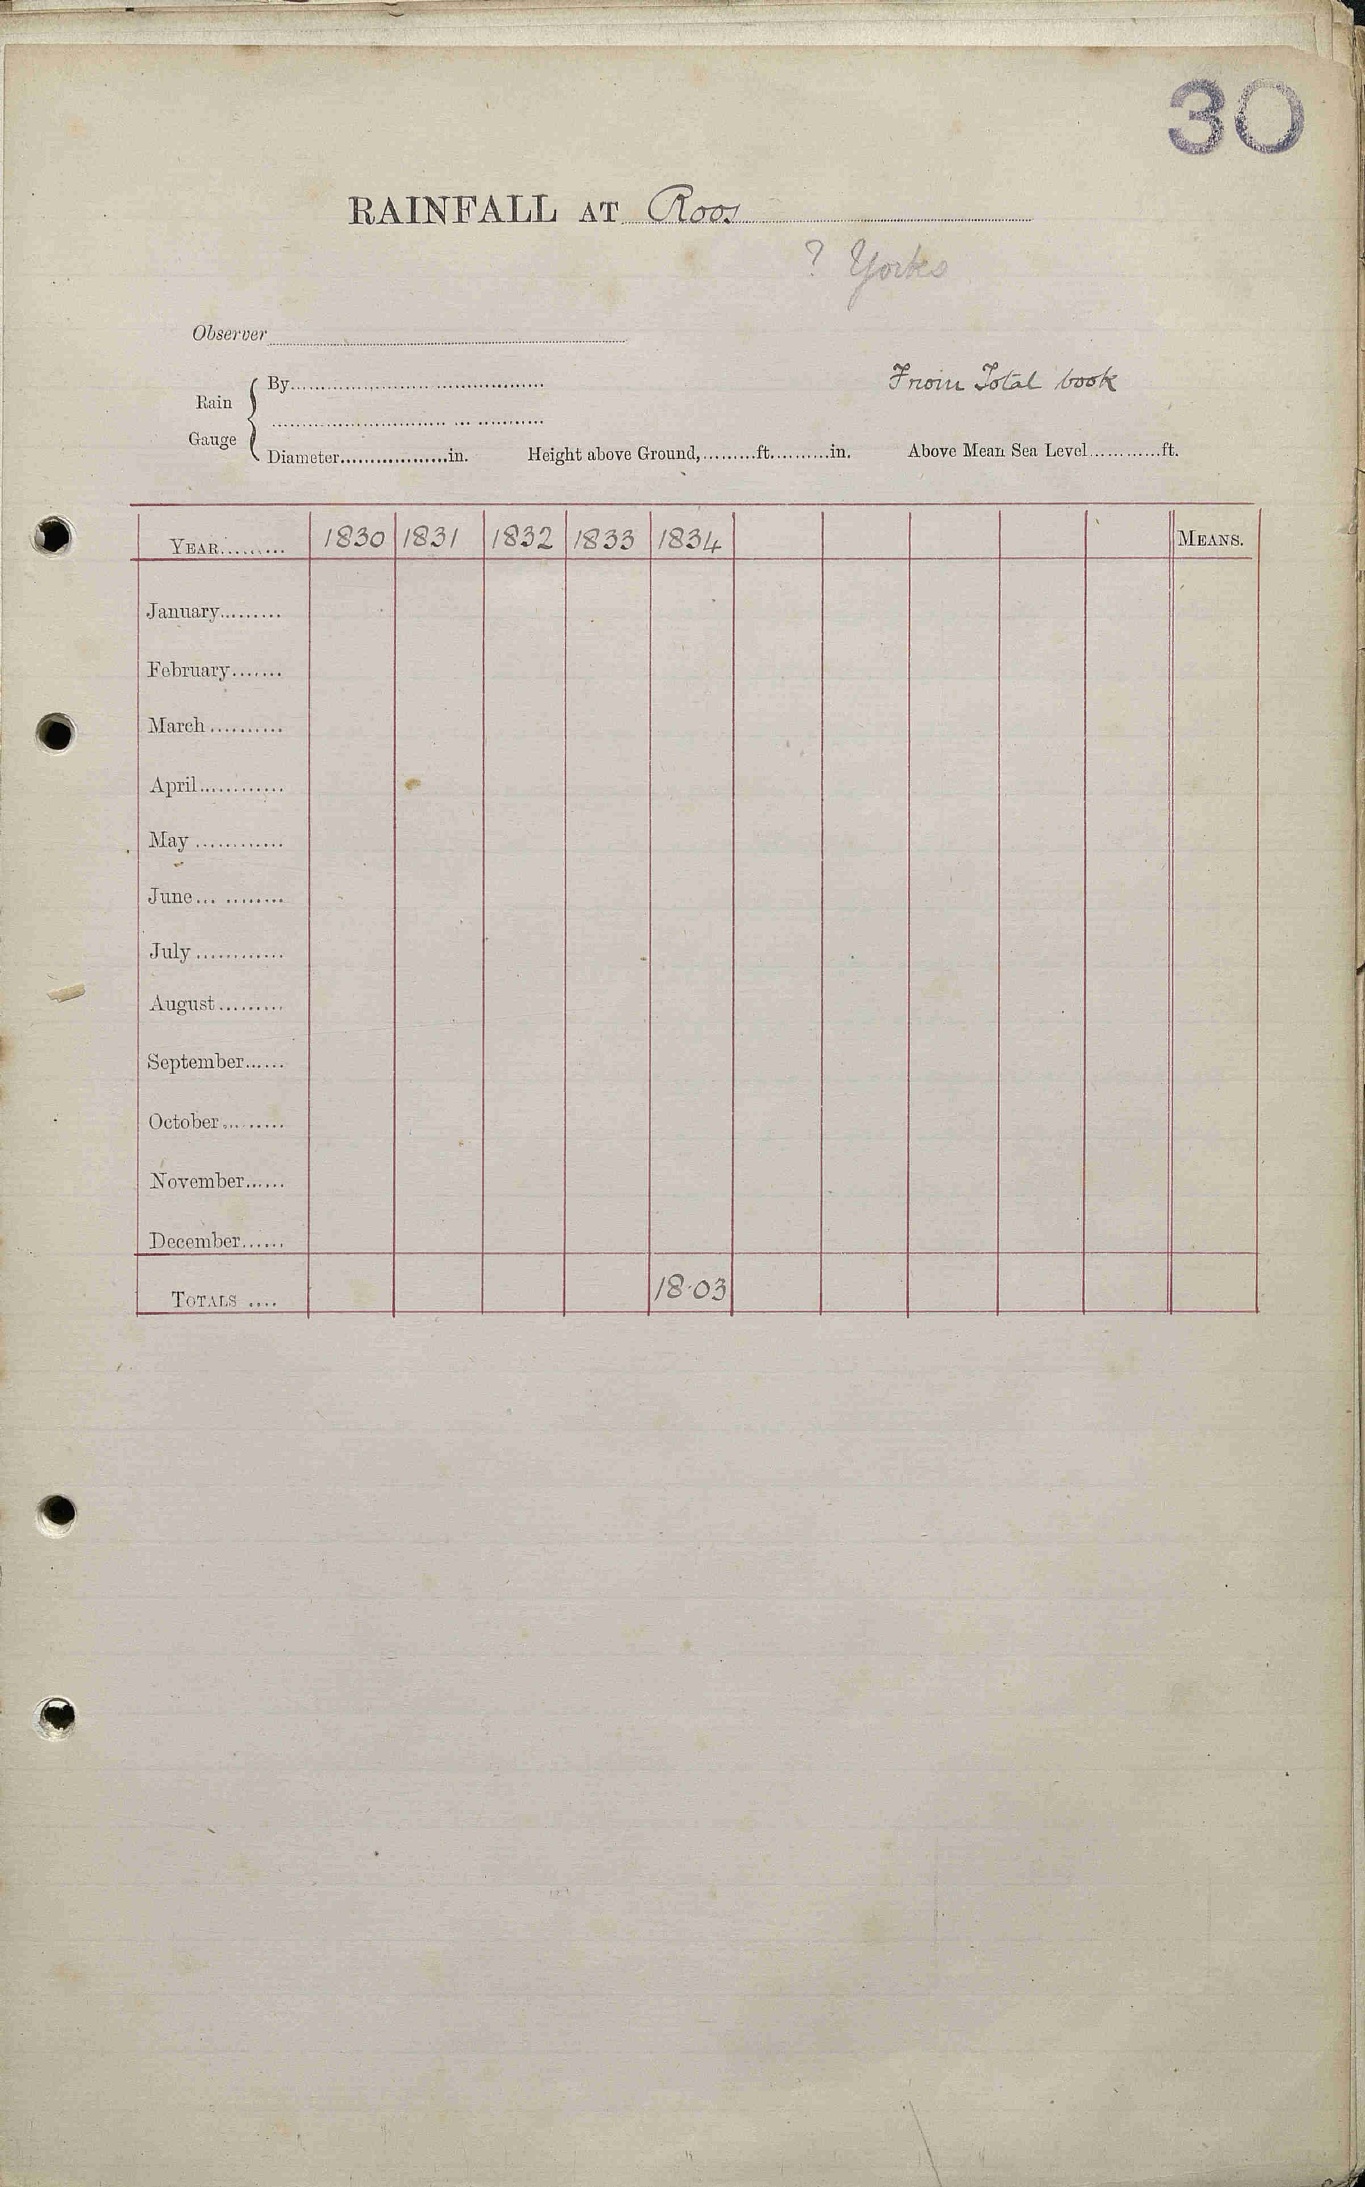 30
RAINFALL AT Roos
? Yorks
Observer
From Total book
Rain Gauge { By
Diameter..................in. Height above Ground,.........ft..........in. Above Mean Sea Level............ft.
YEAR......... 1830 1831 1832 1833 1834 MEANS.
January.........
February.......
March..........
April............
May............
June... ........
July............
August.........
September......
October.........
November......
December......
TOTALS .... 18.03